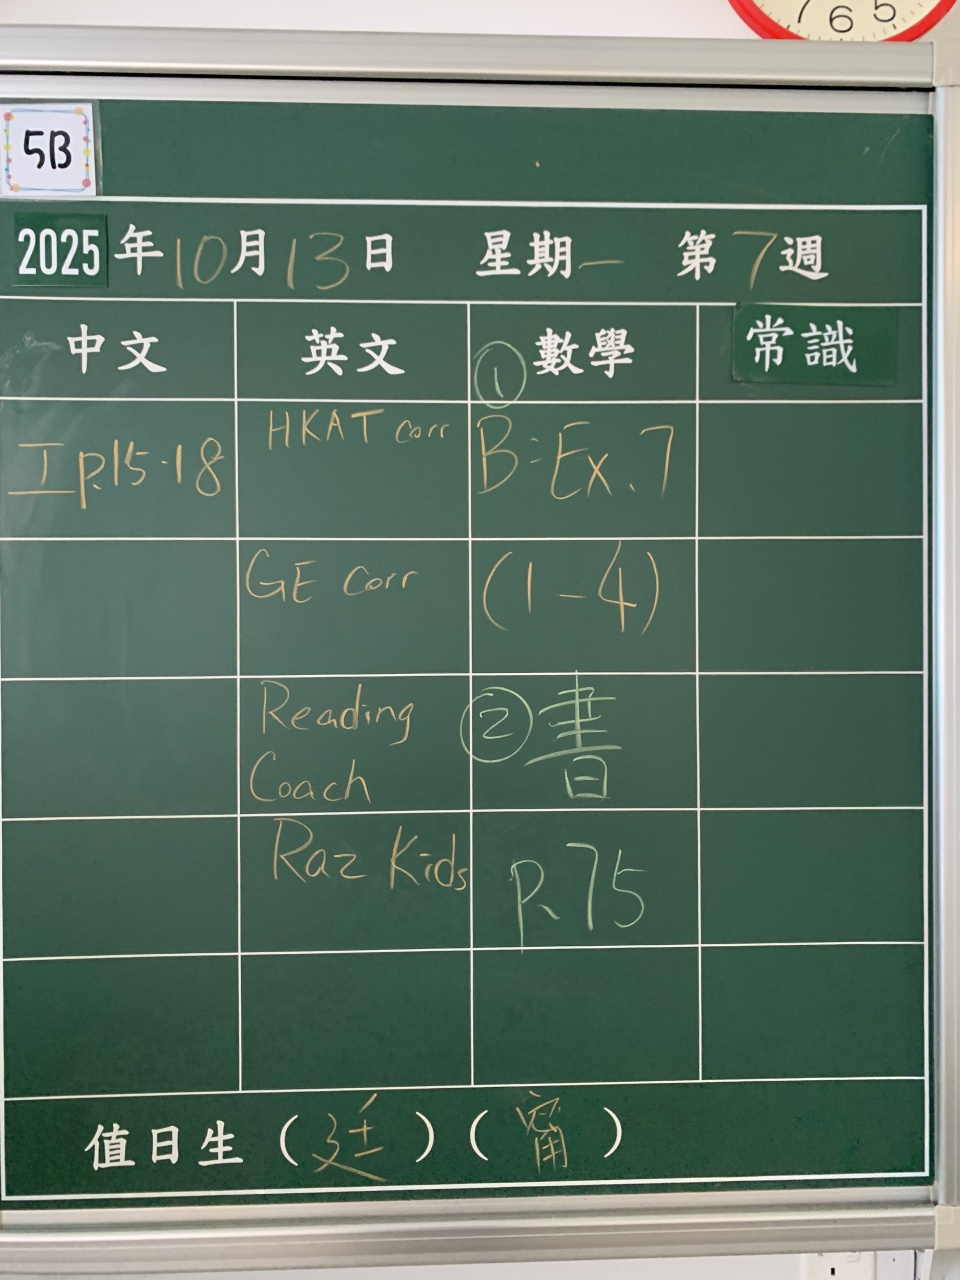 7 6 5
5B
2025年10月13日 星期一 第7週
中文 英文 ①數學 常識
工p.15-18
HKAT corr
GE corr
Reading
Coach
Raz Kids
B:Ex.7
(1-4)
②書
P.75
值日生(廷)(甯)